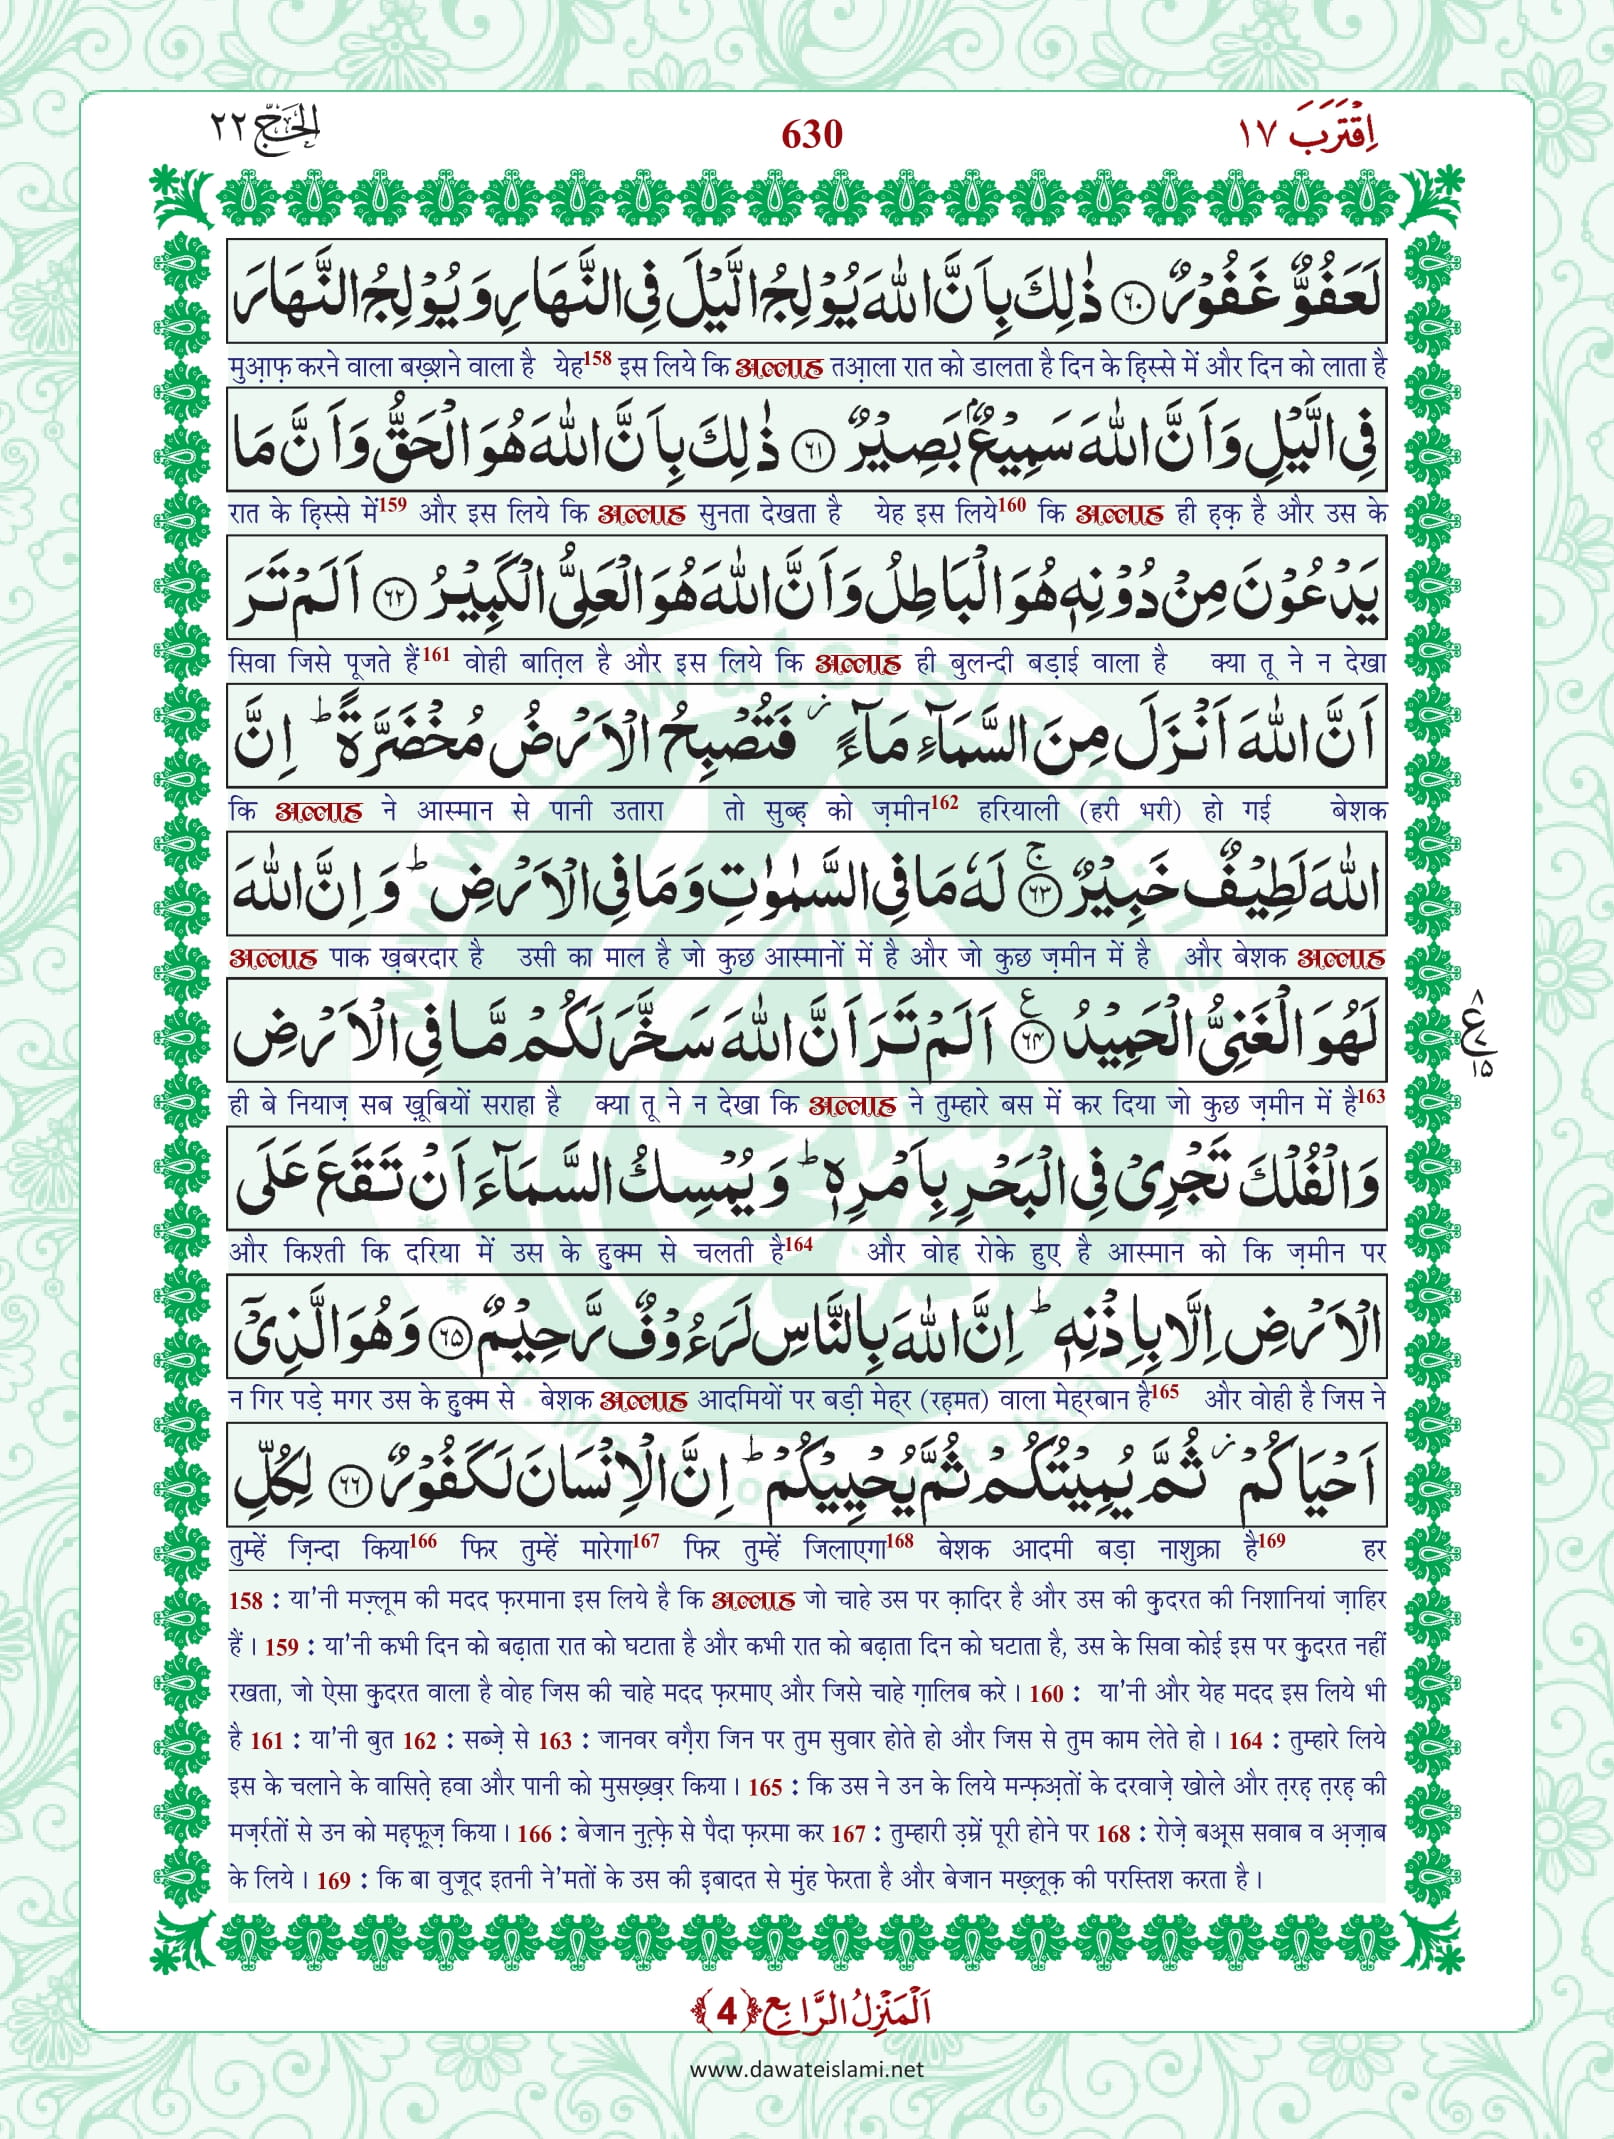 اِقْتَرَبَ ١٧
630
اَلْحَجّ ٢٢
لَعَفُوٌّ غَفُوْرٌ ﴿۶۰﴾ ذٰلِكَ بِاَنَّ اللّٰهَ یُوْلِجُ الَّیْلَ فِی النَّهَارِ وَ یُوْلِجُ النَّهَارَ
मुआ़फ़ करने वाला बख़्शने वाला है येह158 इस लिये कि अल्लाह तआ़ला रात को डालता है दिन के हि़स्से में और दिन को लाता है
فِی الَّیْلِ وَ اَنَّ اللّٰهَ سَمِیْعٌۢ بَصِیْرٌ ﴿۶۱﴾ ذٰلِكَ بِاَنَّ اللّٰهَ هُوَ الْحَقُّ وَ اَنَّ مَا
रात के हि़स्से में159 और इस लिये कि अल्लाह सुनता देखता है येह इस लिये160 कि अल्लाह ही ह़क़ है और उस के
یَدْعُوْنَ مِنْ دُوْنِهٖ هُوَ الْبَاطِلُ وَ اَنَّ اللّٰهَ هُوَ الْعَلِیُّ الْكَبِیْرُ ﴿۶۲﴾ اَلَمْ تَرَ
सिवा जिसे पूजते हैं161 वोही बात़िल है और इस लिये कि अल्लाह ही बुलन्दी बड़ाई वाला है क्या तू ने न देखा
اَنَّ اللّٰهَ اَنْزَلَ مِنَ السَّمَآءِ مَآءً ٘ فَتُصْبِحُ الْاَرْضُ مُخْضَرَّةً ؕ اِنَّ
कि अल्लाह ने आस्मान से पानी उतारा तो सुब्ह़ को ज़मीन162 हरियाली (हरी भरी) हो गई बेशक
اللّٰهَ لَطِیْفٌ خَبِیْرٌ ۚ﴿۶۳﴾ لَهٗ مَا فِی السَّمٰوٰتِ وَ مَا فِی الْاَرْضِ ؕ وَ اِنَّ اللّٰهَ
अल्लाह पाक ख़बरदार है उसी का माल है जो कुछ आस्मानों में है और जो कुछ ज़मीन में है और बेशक अल्लाह
لَهُوَ الْغَنِیُّ الْحَمِیْدُ ۠﴿۶۴﴾ اَلَمْ تَرَ اَنَّ اللّٰهَ سَخَّرَ لَكُمْ مَّا فِی الْاَرْضِ
٨ ع ٧ ١٥
ही बे नियाज़ सब ख़ूबियों सराहा है क्या तू ने न देखा कि अल्लाह ने तुम्हारे बस में कर दिया जो कुछ ज़मीन में है163
وَ الْفُلْكَ تَجْرِیْ فِی الْبَحْرِ بِاَمْرِهٖ ؕ وَ یُمْسِكُ السَّمَآءَ اَنْ تَقَعَ عَلَی
और किश्ती कि दरिया में उस के हु़क्म से चलती है164 और वोह रोके हुए है आस्मान को कि ज़मीन पर
الْاَرْضِ اِلَّا بِاِذْنِهٖ ؕ اِنَّ اللّٰهَ بِالنَّاسِ لَرَءُوْفٌ رَّحِیْمٌ ﴿۶۵﴾ وَ هُوَ الَّذِیْۤ
न गिर पड़े मगर उस के हु़क्म से बेशक अल्लाह आदमियों पर बड़ी मेह्‌र (रह़मत) वाला मेह्‌रबान है165 और वोही है जिस ने
اَحْیَاكُمْ ٘ ثُمَّ یُمِیْتُكُمْ ثُمَّ یُحْیِیْكُمْ ؕ اِنَّ الْاِنْسَانَ لَكَفُوْرٌ ﴿۶۶﴾ لِكُلِّ
तुम्हें ज़िन्दा किया166 फिर तुम्हें मारेगा167 फिर तुम्हें जिलाएगा168 बेशक आदमी बड़ा नाशुक्रा है169 हर
158 : या'नी मज़्लूम की मदद फ़रमाना इस लिये है कि अल्लाह जो चाहे उस पर क़ादिर है और उस की क़ुदरत की निशानियां ज़ाहिर
हैं । 159 : या'नी कभी दिन को बढ़ाता रात को घटाता है और कभी रात को बढ़ाता दिन को घटाता है, उस के सिवा कोई इस पर क़ुदरत नहीं
रखता, जो ऐसा क़ुदरत वाला है वोह जिस की चाहे मदद फ़रमाए और जिसे चाहे ग़ालिब करे । 160 : या'नी और येह मदद इस लिये भी
है 161 : या'नी बुत 162 : सब्ज़े से 163 : जानवर वग़ैरा जिन पर तुम सुवार होते हो और जिस से तुम काम लेते हो । 164 : तुम्हारे लिये
इस के चलाने के वासित़े हवा और पानी को मुसख़्ख़र किया । 165 : कि उस ने उन के लिये मन्फ़अ़तों के दरवाज़े खोले और त़रह़ त़रह़ की
मज़र्रतों से उन को मह़फ़ूज़ किया । 166 : बेजान नुत़्फ़े से पैदा फ़रमा कर 167 : तुम्हारी उ़म्रें पूरी होने पर 168 : रोज़े बअ़्स सवाब व अ़ज़ाब
के लिये । 169 : कि बा वुजूद इतनी ने'मतों के उस की इ़बादत से मुंह फेरता है और बेजान मख़्लूक़ की परस्तिश करता है ।
اَلْمَنْزِلُ الرَّابِع ﴿4﴾
www.dawateislami.net